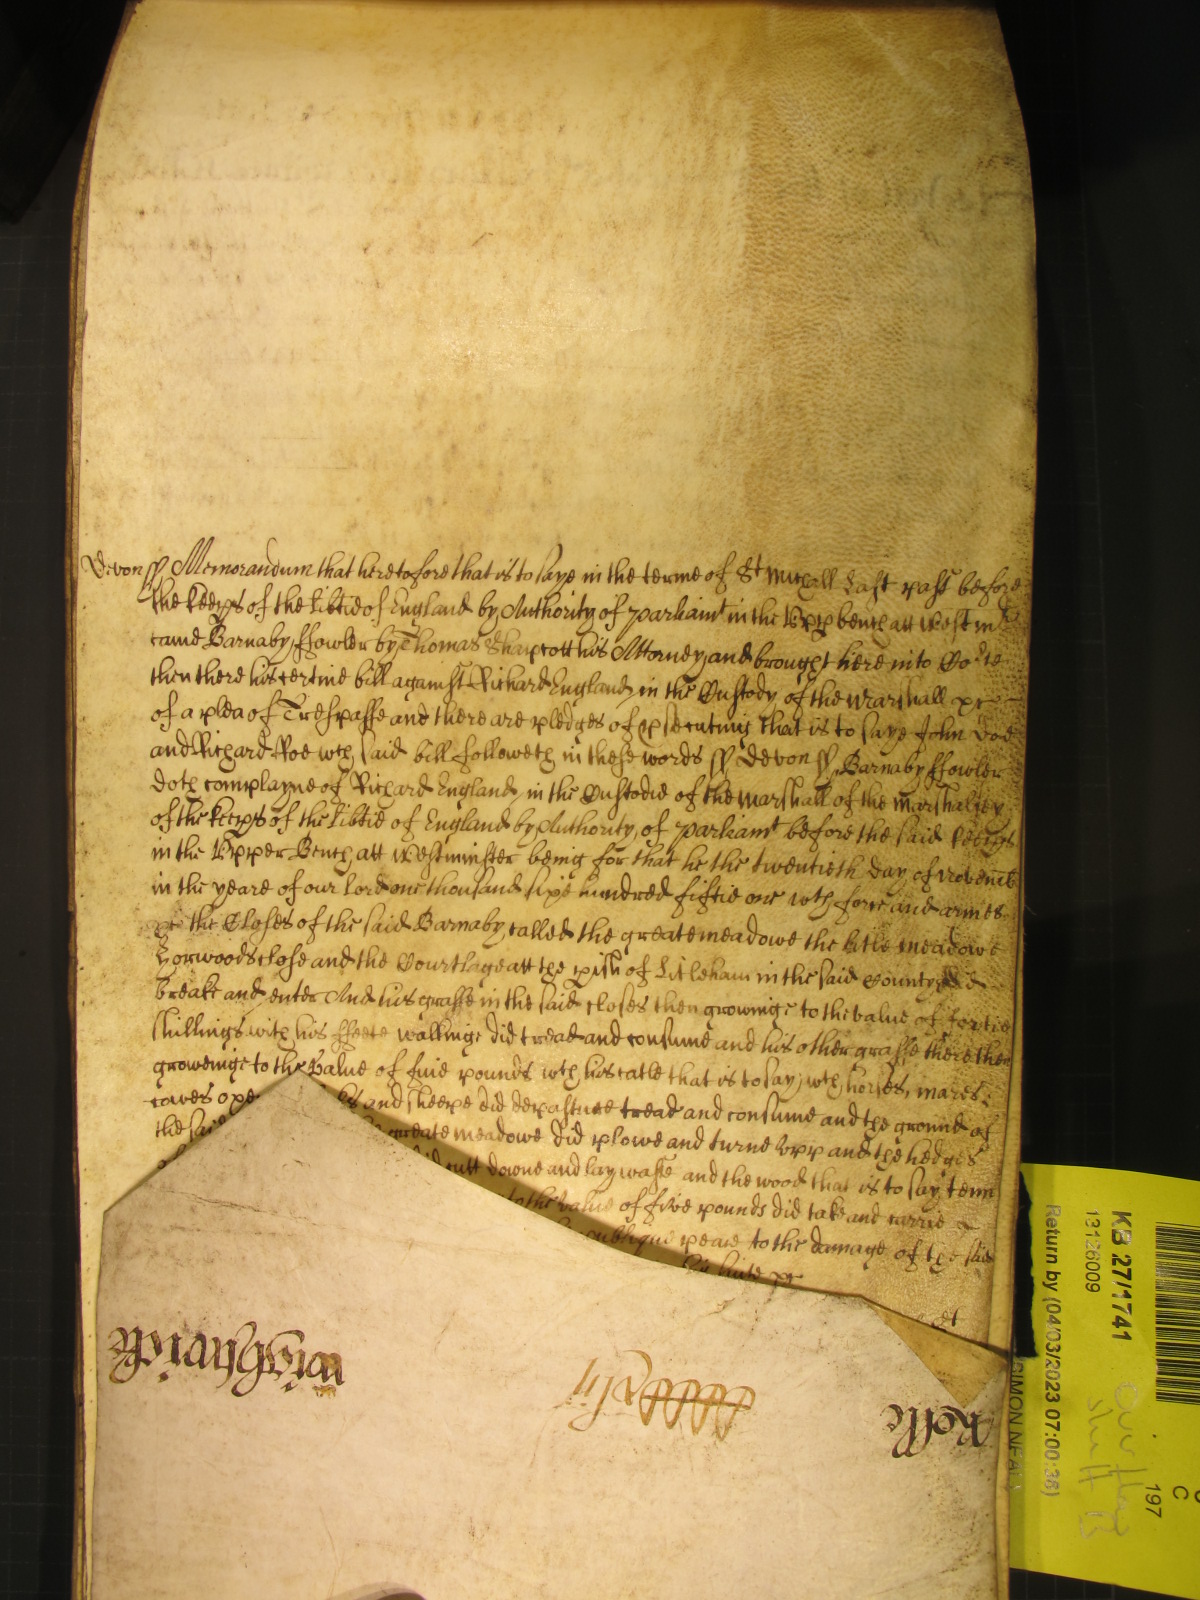 Devon ss Memorandum that heretofore that is to saye in the terme of St Micall Last past before
the keepers of the libtie of England by Authority of parliamt in the Upp bench att Westm
came Barnaby ffowler by Thomas Sharpcott his Attorney and brought here into Cor te
then there his certine bill against Richard England in the Custody of the Marshall pr
of a plea of Trespasse and there are pledges of psecuting that is to saye John Doe
and Richard Roe wch said bill followeth in these words ss Devon ss Barnaby ffowler
doth complayne of Richard England in the Custodie of the Marshall of the Marshalsey
of the keeps of the libtie of England by Authority of parliamt before the said keeps
in the Upper Bench att Westminster being for that he the twentieth day of Novemb
in the yeare of our Lord one thousand sixe hundred fiftie one wth force and armes
the Closes of the said Barnaby called the greate meadowe the litle meadowe
Yorwoods close and the Courtlage att the pish of Litleham in the said County did
breake and enter And his grasse in the said closes then growinge to the value of fortie
shillings with his ffeete walkinge did tread and consume and his other grasse there then
groweinge to the Value of five pounds wth his catle that is to say, wth horses, mares,
cowes oxe and sheepe did depasture tread and consume and the ground of
the said greate meadowe did plowe and turne Upp and the hedges
did cutt downe and lay waste and the wood that is to say tenn
to the value of five pounds did take and carrie
publique peace to the damage of the said
suite pr
Rolle
Wightwick
KB 27/1741
13126009
Return by (04/03/2023 07:00:36)
SIMON NEAL
197
C